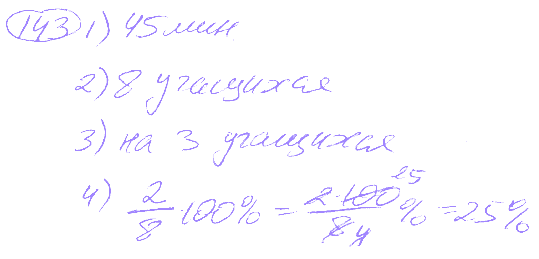 143 1) 45 мин
2) 8 учащихся
3) на 3 учащихся
4) 2/8 · 100% = 2·100 25/8 4 % = 25%